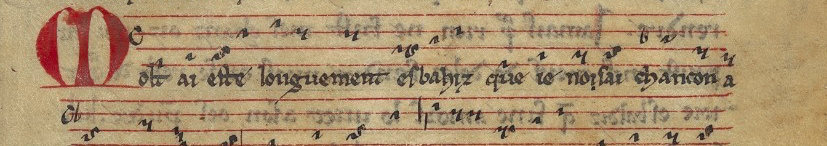 Molt ai este longuement esbahiz q̄ue ie noisai chancon a